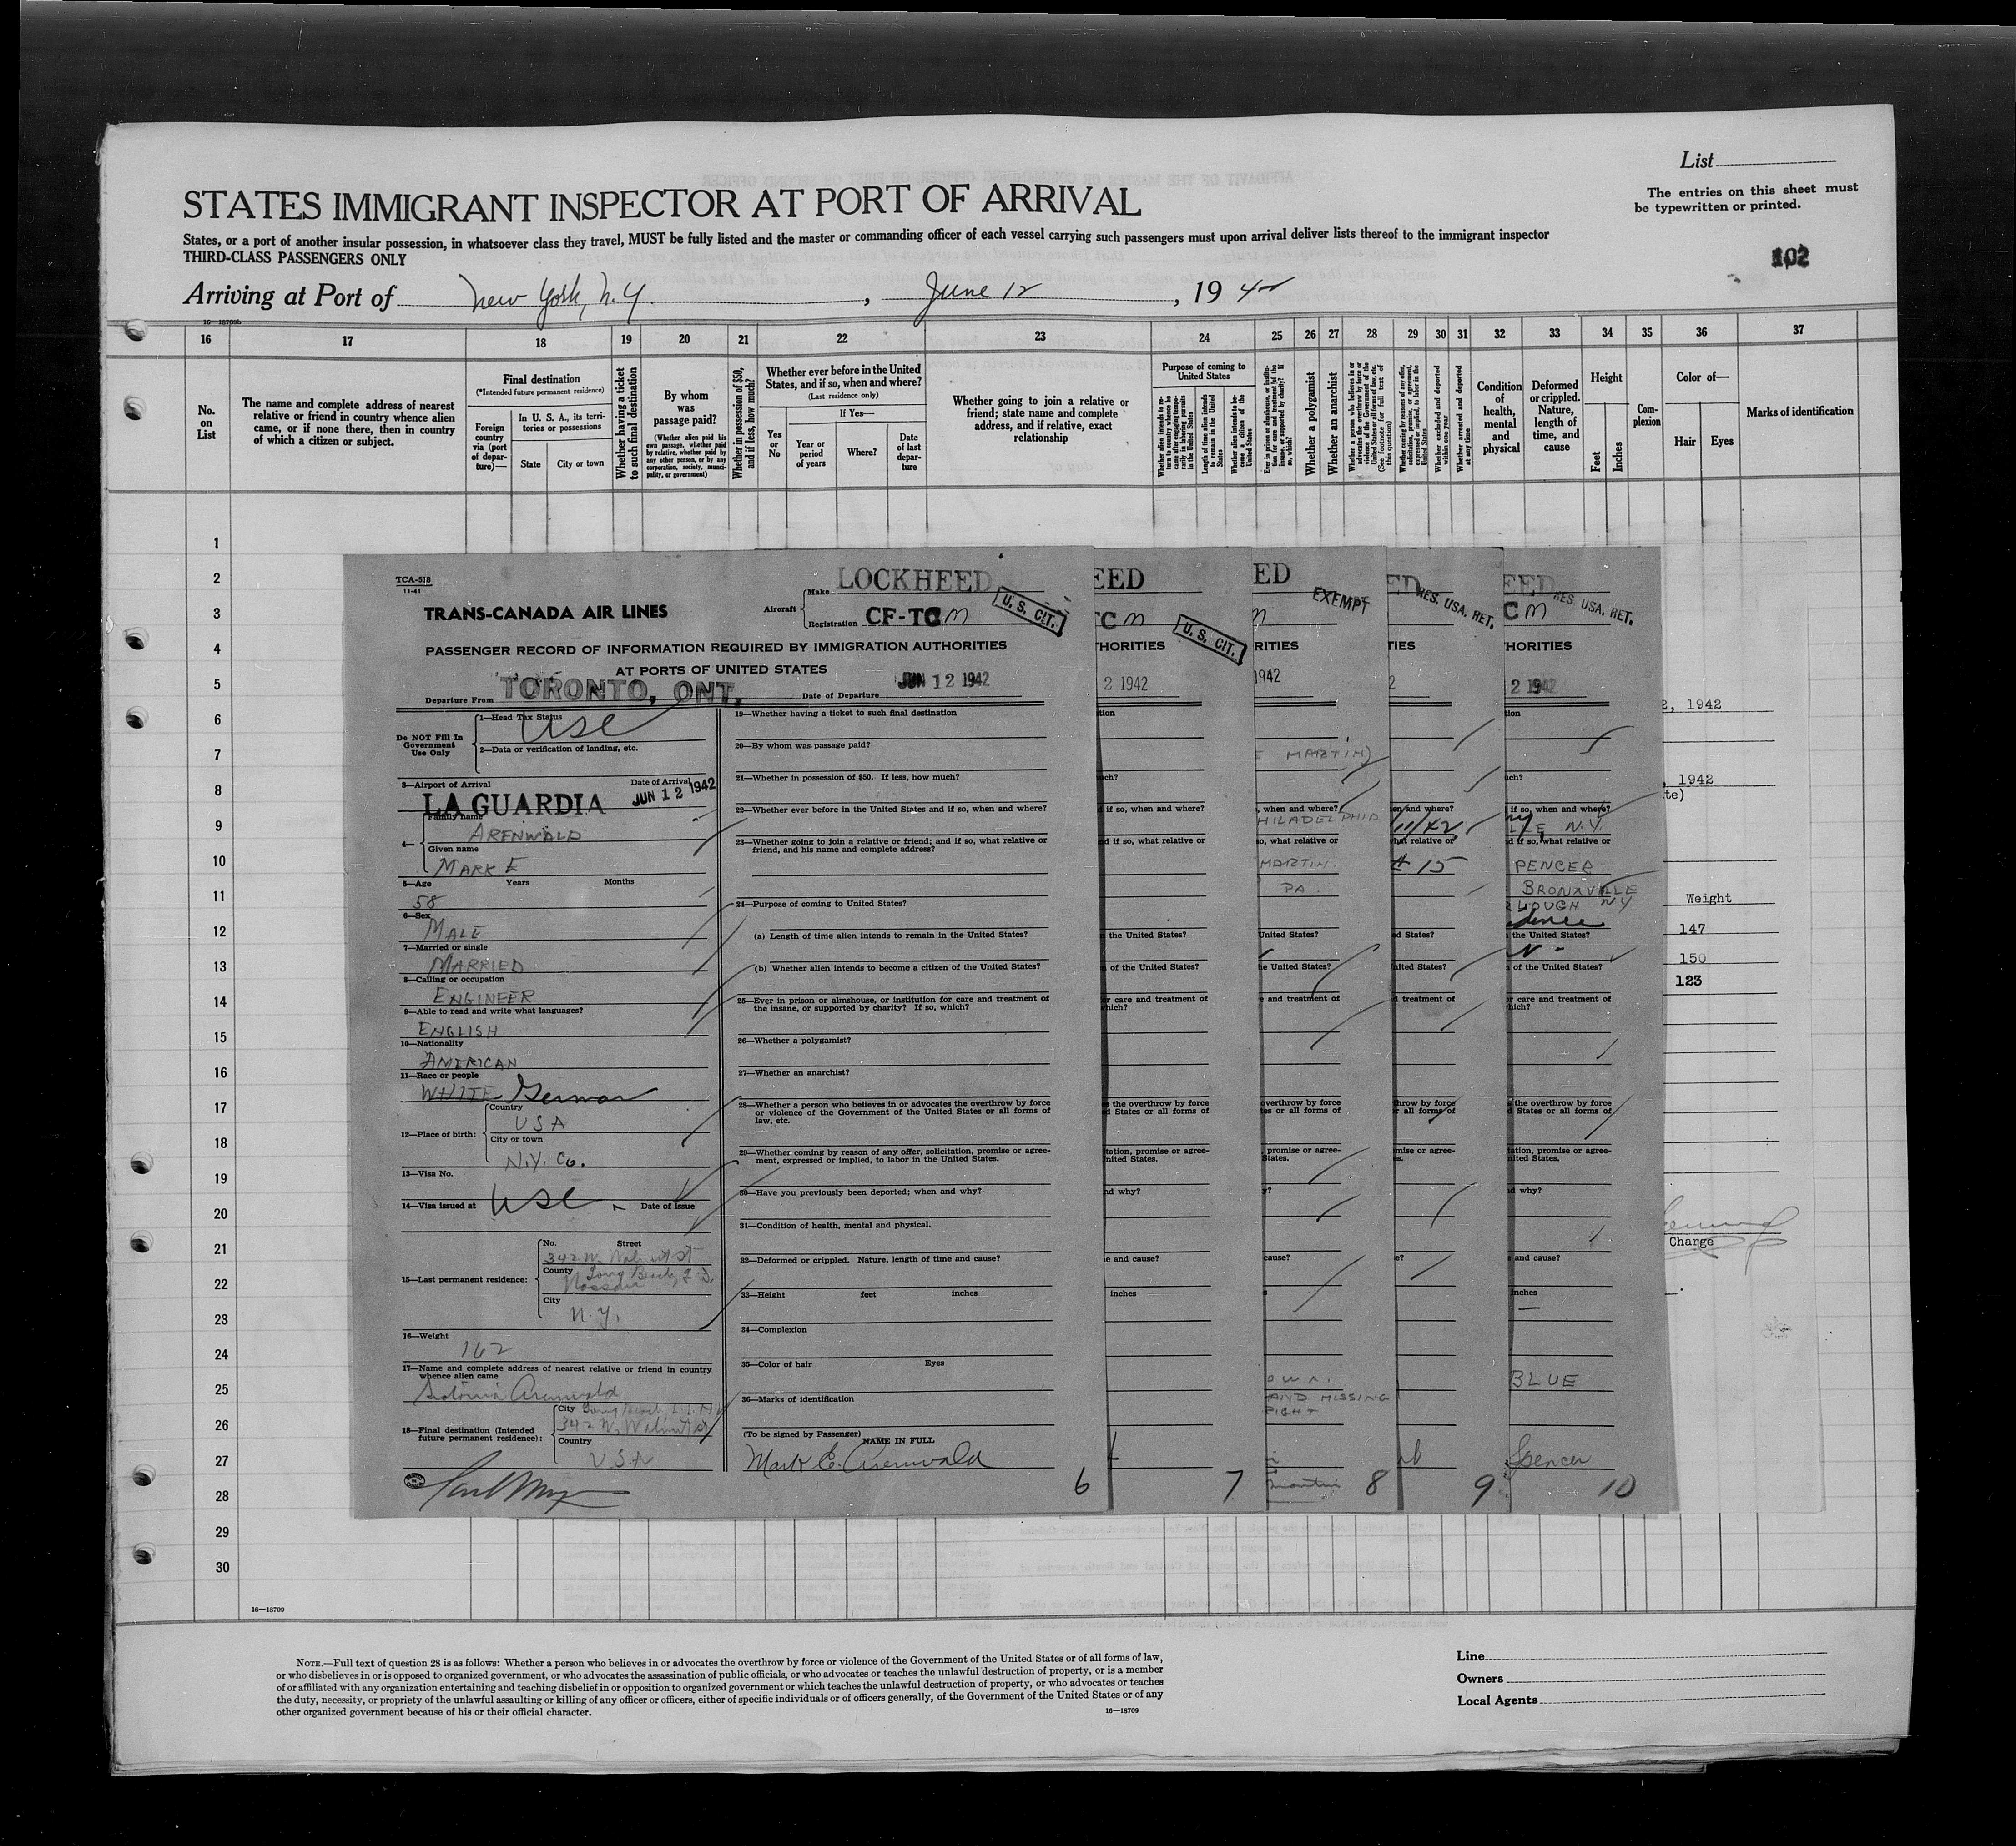 List
STATES IMMIGRANT INSPECTOR AT PORT OF ARRIVAL
The entries on this sheet must
be typewritten or printed.
States, or a port of another insular possession, in whatsoever class they travel, MUST be fully listed and the master or commanding officer of each vessel carrying such passengers must upon arrival deliver lists thereof to the immigrant inspector
THIRD-CLASS PASSENGERS ONLY
102
Arriving at Port of New York, N.Y. , June 12 , 19 42
16 17 18 19 20 21 22 23 24 25 26 27 28 29 30 31 32 33 34 35 36 37
No. on List
The name and complete address of nearest relative or friend in country whence alien came, or if none there, then in country of which a citizen or subject.
Final destination
(*Intended future permanent residence)
Foreign country via (port of departure)—
In U. S. A., its territories or possessions
State
City or town
Whether having a ticket to such final destination
By whom was passage paid?
(Whether alien paid his own passage, whether paid by relative, whether paid by any other person, or by any corporation, society, municipality, or government)
Whether in possession of $50, and if less, how much?
Whether ever before in the United States, and if so, when and where?
(Last residence only)
Yes or No
If Yes—
Year or period of years
Where?
Date of last departure
Whether going to join a relative or friend; state name and complete address, and if relative, exact relationship
Purpose of coming to United States
Whether a polygamist
Whether an anarchist
Condition of health, mental and physical
Deformed or crippled. Nature, length of time, and cause
Height
Feet
Inches
Complexion
Color of—
Hair
Eyes
Marks of identification
1
2
3
4
5
6
7
8
9
10
11
12
13
14
15
16
17
18
19
20
21
22
23
24
25
26
27
28
29
30
TCA-518
11-41
TRANS-CANADA AIR LINES
Aircraft
Make LOCKHEED
Registration CF-TCM
U. S. CIT.
PASSENGER RECORD OF INFORMATION REQUIRED BY IMMIGRATION AUTHORITIES
AT PORTS OF UNITED STATES
Departure From TORONTO, ONT.
Date of Departure JUN 12 1942
Do NOT Fill In Government Use Only
1—Head Tax Status
USC
2—Data or verification of landing, etc.
3—Airport of Arrival LA GUARDIA
Date of Arrival JUN 12 1942
4—
Family name
ARENWALD
Given name
MARK E
5—Age Years Months
58
6—Sex
MALE
7—Married or single
MARRIED
8—Calling or occupation
ENGINEER
9—Able to read and write what languages?
ENGLISH
10—Nationality
AMERICAN
11—Race or people
WHITE German
12—Place of birth:
Country
USA
City or town
N.Y. Co.
13—Visa No.
14—Visa issued at USC Date of issue
15—Last permanent residence:
No. Street
342 W. Walnut St
County Long Beach, L.I.
Nassau
City
N.Y.
16—Weight
162
17—Name and complete address of nearest relative or friend in country
whence alien came
Arenwald
18—Final destination (Intended
future permanent residence):
City Long Beach L.I. N.Y.
342 W. Walnut St
Country
USA
19—Whether having a ticket to such final destination
20—By whom was passage paid?
21—Whether in possession of $50. If less, how much?
22—Whether ever before in the United States and if so, when and where?
23—Whether going to join a relative or friend; and if so, what relative or
friend, and his name and complete address?
24—Purpose of coming to United States?
(a) Length of time alien intends to remain in the United States?
(b) Whether alien intends to become a citizen of the United States?
25—Ever in prison or almshouse, or institution for care and treatment of
the insane, or supported by charity? If so, which?
26—Whether a polygamist?
27—Whether an anarchist?
28—Whether a person who believes in or advocates the overthrow by force
or violence of the Government of the United States or all forms of
law, etc.
29—Whether coming by reason of any offer, solicitation, promise or agree-
ment, expressed or implied, to labor in the United States.
30—Have you previously been deported; when and why?
31—Condition of health, mental and physical.
32—Deformed or crippled. Nature, length of time and cause?
33—Height feet inches
34—Complexion
35—Color of hair Eyes
36—Marks of identification
(To be signed by Passenger) NAME IN FULL
Mark E. Arenwald
6
EED
TC M
U. S. CIT.
HORITIES
2 1942
7
ED
EXEMPT
RITIES
1942
MARTIN)
HILADELPHIA
MARTIN
PA.
OWN.
HAND MISSING
RIGHT
Martin
8
RES. USA. RET.
TIES
11/42
15
9
EED
C M
RES. USA. RET.
HORITIES
2 1942
LLE, N.Y.
PENCER
BRONXVILLE
N.Y
BLUE
Spencer
10
2, 1942
, 1942
te)
Weight
147
150
123
Charge
16—18709
NOTE.—Full text of question 28 is as follows: Whether a person who believes in or advocates the overthrow by force or violence of the Government of the United States or of all forms of law,
or who disbelieves in or is opposed to organized government, or who advocates the assassination of public officials, or who advocates or teaches the unlawful destruction of property, or is a member
of or affiliated with any organization entertaining and teaching disbelief in or opposition to organized government or which teaches the unlawful destruction of property, or who advocates or teaches
the duty, necessity, or propriety of the unlawful assaulting or killing of any officer or officers, either of specific individuals or of officers generally, of the Government of the United States or of any
other organized government because of his or their official character.
16—18709
Line
Owners
Local Agents